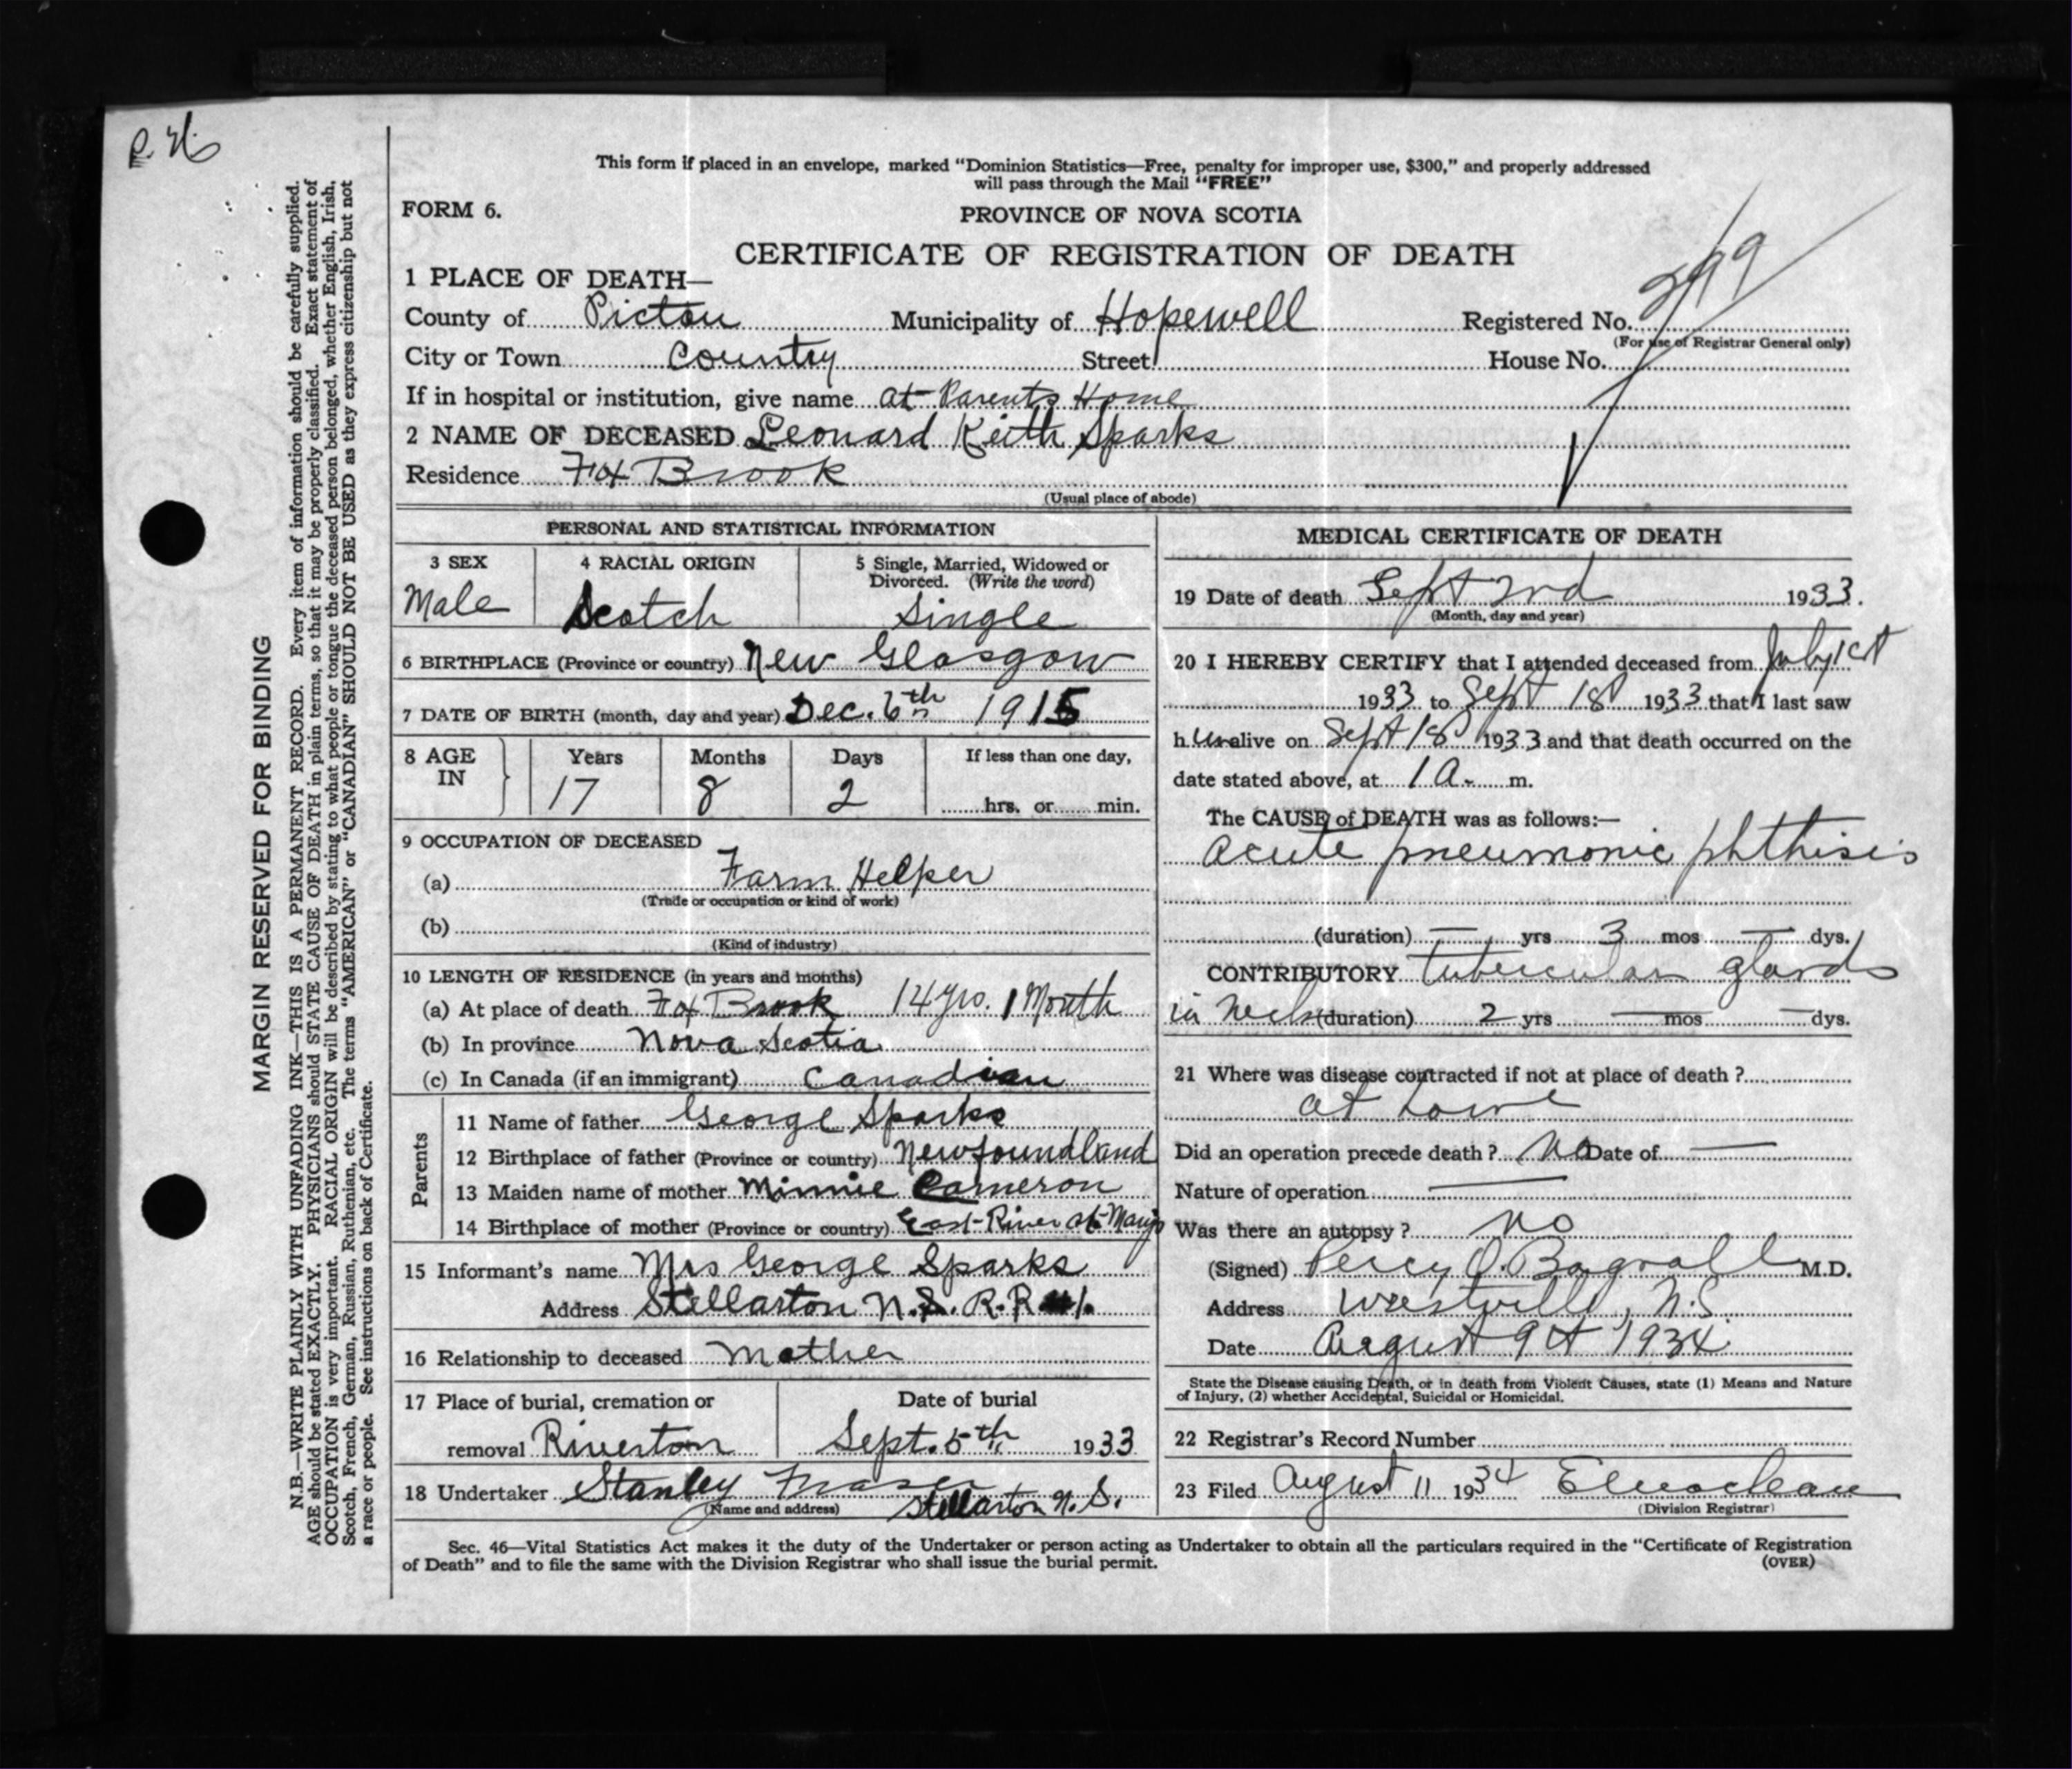 This form if placed in an envelope, marked “Dominion Statistics—Free, penalty for improper use, $300,” and properly addressed
will pass through the Mail “FREE”
FORM 6.
PROVINCE OF NOVA SCOTIA
CERTIFICATE OF REGISTRATION OF DEATH
1 PLACE OF DEATH—
County of Pictou Municipality of Hopewell Registered No.
(For use of Registrar General only)
City or Town Country Street House No.
If in hospital or institution, give name at Parents Home
2 NAME OF DECEASED Leonard Keith Sparks
Residence Fox Brook
(Usual place of abode)
PERSONAL AND STATISTICAL INFORMATION
3 SEX 4 RACIAL ORIGIN 5 Single, Married, Widowed or
Divorced. (Write the word)
Male Scotch Single
6 BIRTHPLACE (Province or country) New Glasgow
7 DATE OF BIRTH (month, day and year) Dec. 6th 1915
8 AGE IN Years Months Days If less than one day,
17 8 2 hrs. or min.
9 OCCUPATION OF DECEASED
(a) Farm Helper
(Trade or occupation or kind of work)
(b)
(Kind of industry)
10 LENGTH OF RESIDENCE (in years and months)
(a) At place of death Fox Brook 14 yrs. 1 Month
(b) In province Nova Scotia
(c) In Canada (if an immigrant) Canadian
Parents
11 Name of father George Sparks
12 Birthplace of father (Province or country) Newfoundland
13 Maiden name of mother Minnie Cameron
14 Birthplace of mother (Province or country) East River St Marys
15 Informant's name Mrs George Sparks
Address Stellarton N.S. R.R #1.
16 Relationship to deceased Mother
17 Place of burial, cremation or Date of burial
removal Riverton Sept. 5th 1933
18 Undertaker Stanley Fraser
(Name and address) Stellarton N.S.
MEDICAL CERTIFICATE OF DEATH
19 Date of death Sept 2nd 1933.
(Month, day and year)
20 I HEREBY CERTIFY that I attended deceased from July 1st
1933 to Sept 1st 1933 that I last saw
h im alive on Sept 1st 1933 and that death occurred on the
date stated above, at 1 a. m.
The CAUSE of DEATH was as follows:—
Acute pneumonic phthisis
(duration) — yrs 3 mos — dys.
CONTRIBUTORY tubercular glands
in neck (duration) 2 yrs — mos — dys.
21 Where was disease contracted if not at place of death ?
at home
Did an operation precede death ? No Date of —
Nature of operation —
Was there an autopsy ? No
(Signed) Percy O. Bagnall M.D.
Address Westville, N.S.
Date August 9th 1934
State the Disease causing Death, or in death from Violent Causes, state (1) Means and Nature
of Injury, (2) whether Accidental, Suicidal or Homicidal.
22 Registrar's Record Number
23 Filed August 11 1934
(Division Registrar)
Sec. 46—Vital Statistics Act makes it the duty of the Undertaker or person acting as Undertaker to obtain all the particulars required in the “Certificate of Registration
of Death” and to file the same with the Division Registrar who shall issue the burial permit.
(OVER)
MARGIN RESERVED FOR BINDING
N.B.—WRITE PLAINLY WITH UNFADING INK—THIS IS A PERMANENT RECORD. Every item of information should be carefully supplied.
AGE should be stated EXACTLY. PHYSICIANS should STATE CAUSE OF DEATH in plain terms, so that it may be properly classified. Exact statement of
OCCUPATION is very important. RACIAL ORIGIN will be described by stating to what people or tongue the deceased person belonged, whether English, Irish,
Scotch, French, German, Russian, Ruthenian, etc. The terms “AMERICAN” or “CANADIAN” SHOULD NOT BE USED as they express citizenship but not
a race or people. See instructions on back of Certificate.